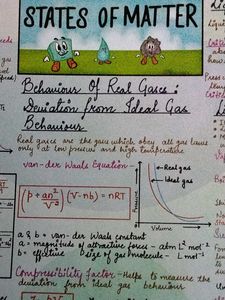 STATES OF MATTER
Behaviour Of Real Gases :
Deviation from Ideal Gas
Behaviour
Real gases are the gases which obey all gas laws
only at low pressure and high temperature
van-der Waals Equation
(p + an²/V²) (V-nb) = nRT
Real gas
Ideal gas
Pressure
Volume
a & b = van-der Waals constant
a = magnitude of attractive forces - atm L² mol⁻²
b = effective size of gas molecule - L mol⁻¹
Compressibility factor - Helps to measure the
deviation from ideal gas behaviour